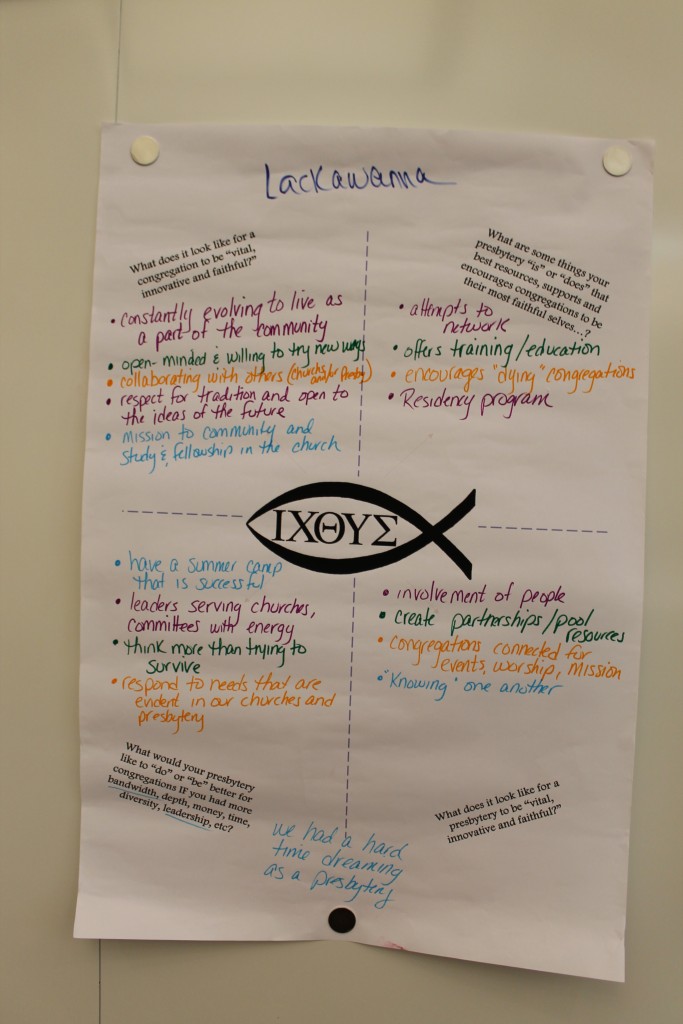 Lackawanna
What does it look like for a
congregation to be "vital,
innovative and faithful?"
• constantly evolving to live as
a part of the community
• open-minded & willing to try new ways
• collaborating with others (churchs and/or Presby)
• respect for tradition and open to
the ideas of the future
• mission to community and
study & fellowship in the church
What are some things your
presbytery "is" or "does" that
best resources, supports and
encourages congregations to be
their most faithful selves...?
• attempts to
network
• offers training/education
• encourages "dying" congregations
• Residency program
ΙΧΘΥΣ
• have a summer camp
that is successful
• leaders serving churches,
committees with energy
• think more than trying to
survive
• respond to needs that are
evident in our churches and
presbytery
What would your presbytery
like to "do" or "be" better for
congregations IF you had more
bandwidth, depth, money, time,
diversity, leadership, etc?
• involvement of people
• create partnerships/pool
resources
• congregations connected for
events, worship, mission
• "Knowing" one another
What does it look like for a
presbytery to be "vital,
innovative and faithful?"
we had a hard
time dreaming
as a presbytery